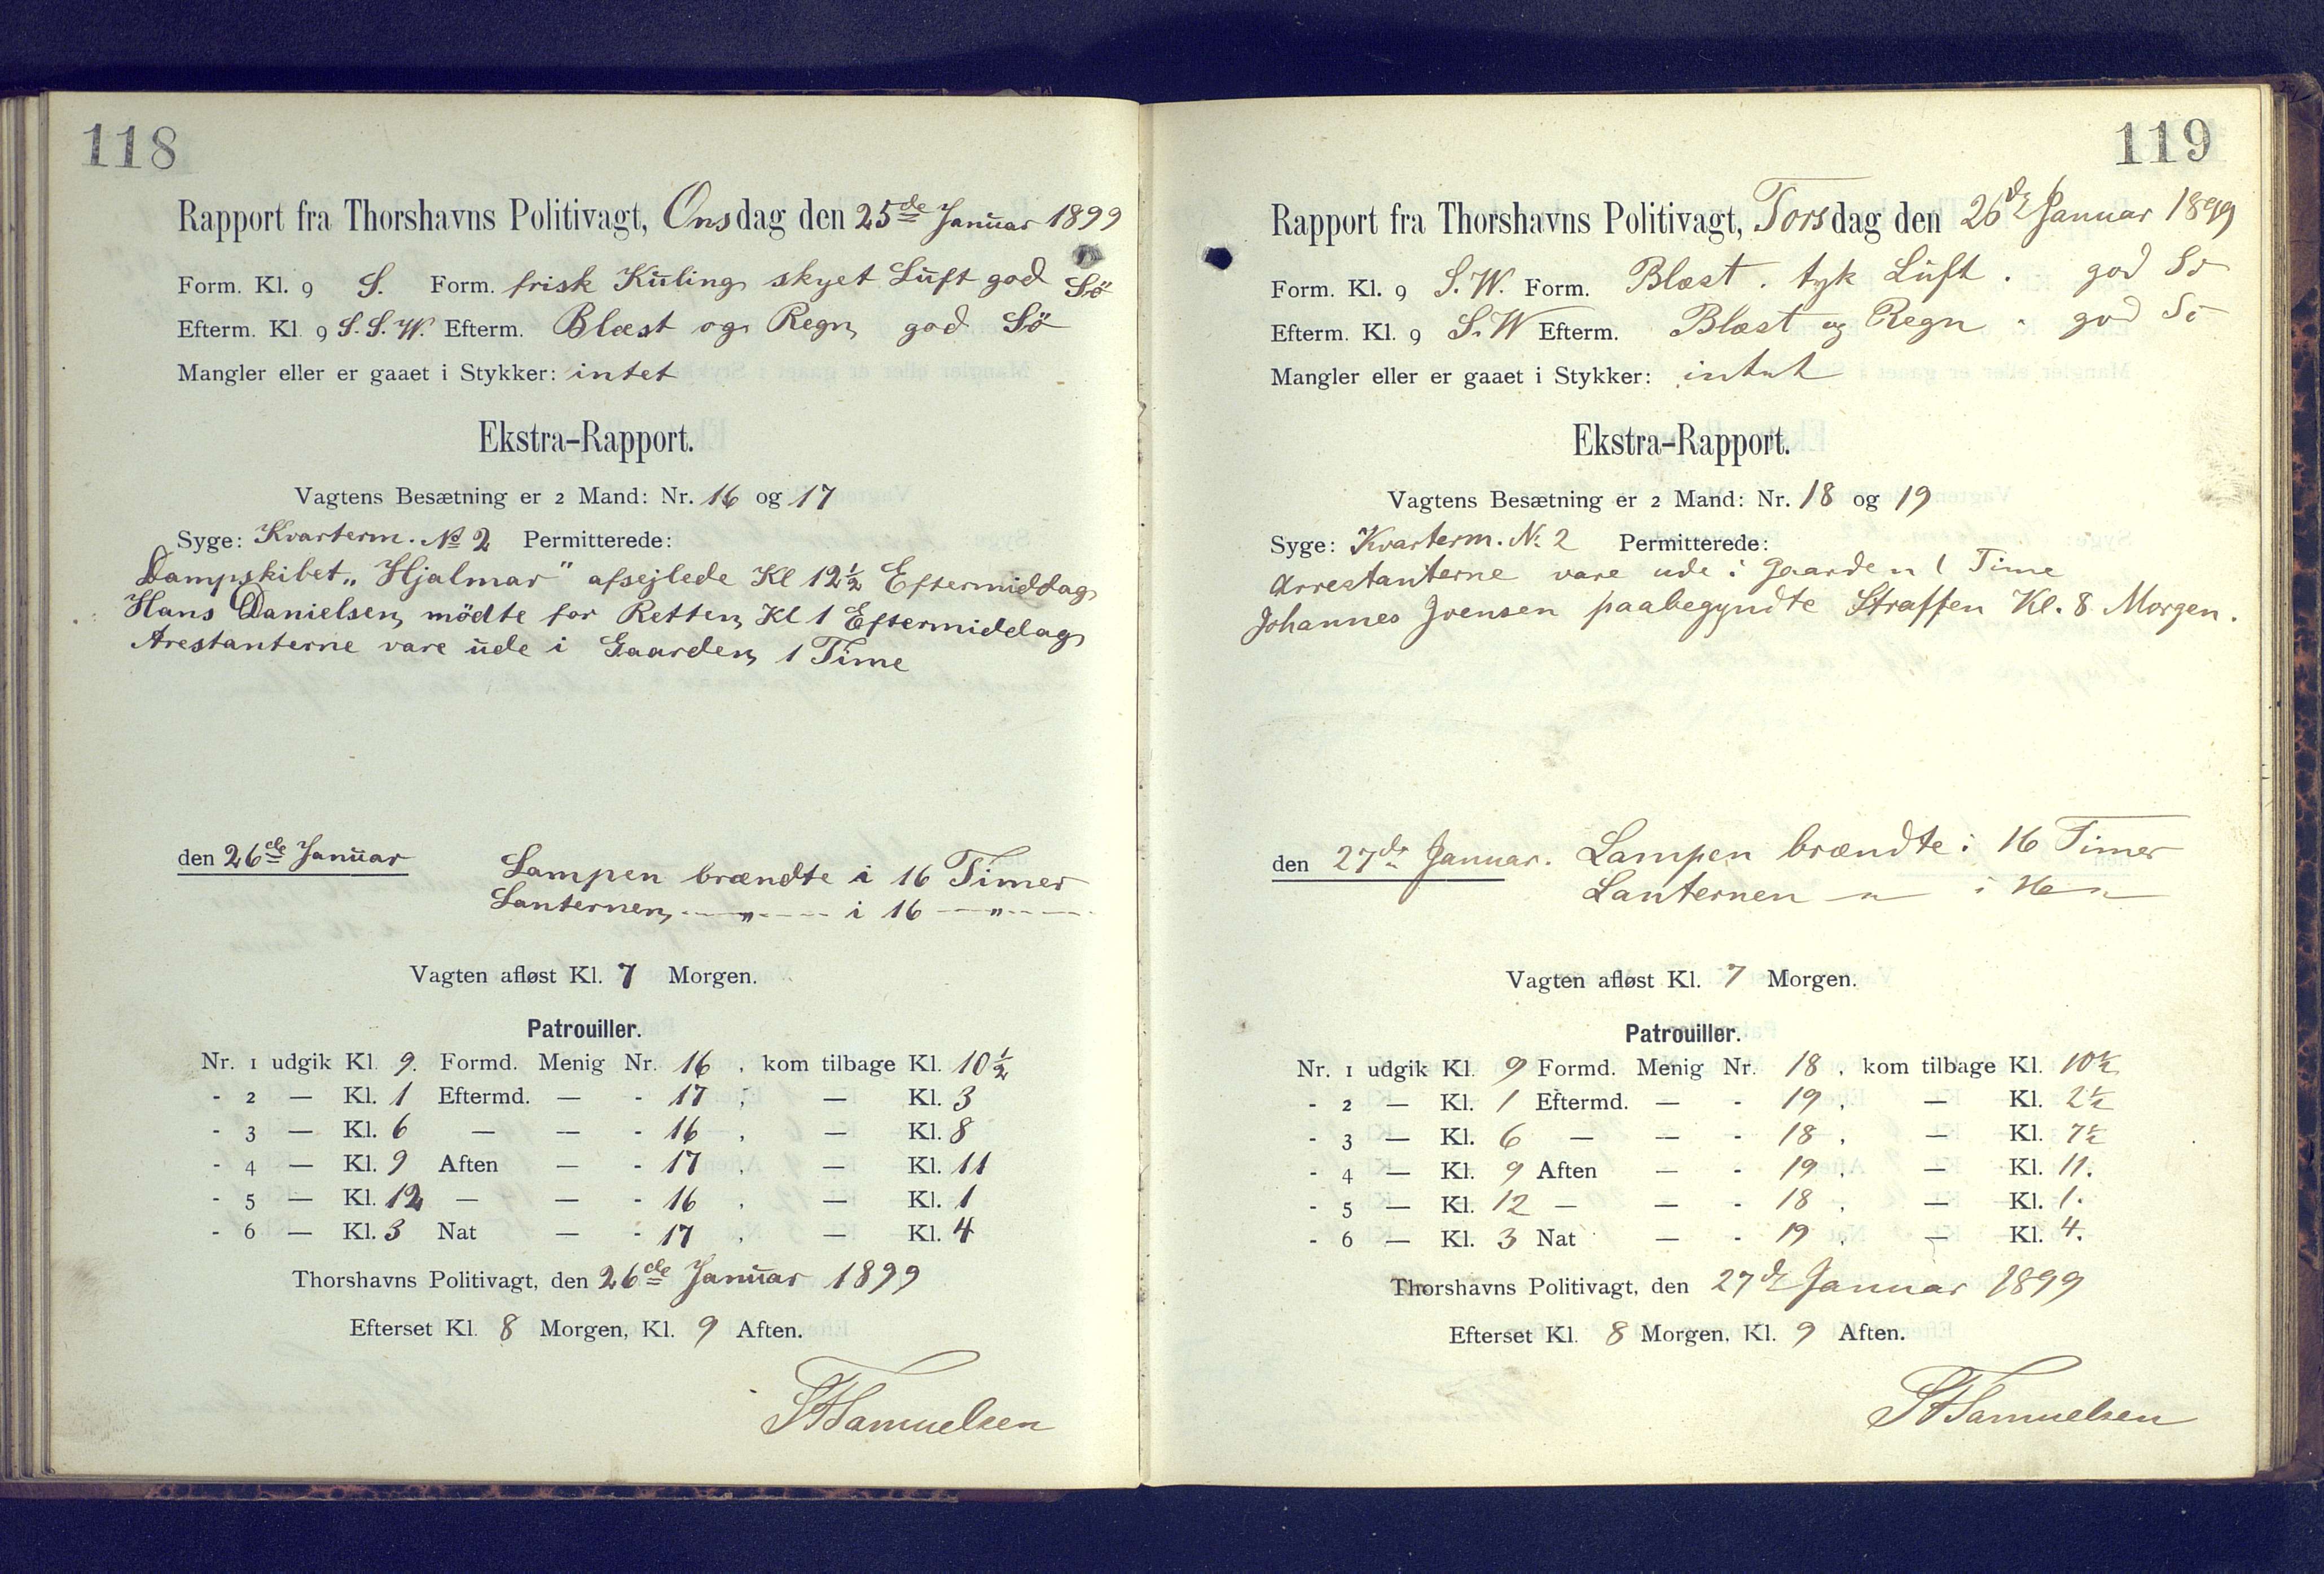 118
Rapport fra Thorshavns Politivagt, Onsdag den 25de Januar 1899
Form. Kl. 9 S. Form. frisk Kuling skyet Luft god Sö
Efterm. Kl. 9 S.S.W. Efterm. Blæst og Regn god Sö
Mangler eller er gaaet i Stykker: intet
Ekstra-Rapport.
Vagtens Besætning er 2 Mand: Nr. 16 og 17
Syge: Kvarterm. No 2 Permitterede:
Dampskibet „Hjalmar" afsejlede Kl 12½ Eftermiddag
Hans Danielsen mödte for Retten Kl 1 Eftermiddag
Arestanterne vare ude i Gaarden 1 Time
den 26de Januar
Lampen brændte i 16 Timer
Lanternen — " — i 16 — " —
Vagten afløst Kl. 7 Morgen.
Patrouiller.
Nr. 1 udgik Kl. 9. Formd. Menig Nr. 16, kom tilbage Kl. 10½
- 2 — Kl. 1 Eftermd. — - 17, — Kl. 3
- 3 — Kl. 6 — — - 16, — Kl. 8
- 4 — Kl. 9 Aften — - 17, — Kl. 11
- 5 — Kl. 12 — — - 16, — Kl. 1
- 6 — Kl. 3 Nat — - 17, — Kl. 4
Thorshavns Politivagt, den 26de Januar 1899
Efterset Kl. 8 Morgen, Kl. 9 Aften.
Samuelsen
119
Rapport fra Thorshavns Politivagt, Torsdag den 26de Januar 1899
Form. Kl. 9 S.W. Form. Blæst. tyk Luft. god Sö
Efterm. Kl. 9 S.W Efterm. Blæst og Regn. god Sö
Mangler eller er gaaet i Stykker: intet
Ekstra-Rapport.
Vagtens Besætning er 2 Mand: Nr. 18 og 19
Syge: Kvarterm. No. 2 Permitterede:
Arrestanterne vare ude i Gaarden 1 Time
Johannes Joensen paabegyndte Straffen Kl. 8 Morgen.
den 27de Januar.
Lampen brændte i 16 Timer
Lanternen — " — i 16 — " —
Vagten afløst Kl. 7 Morgen.
Patrouiller.
Nr. 1 udgik Kl. 9 Formd. Menig Nr. 18, kom tilbage Kl. 10½
- 2 — Kl. 1 Eftermd. — - 19, — Kl. 2½
- 3 — Kl. 6 — — - 18, — Kl. 7½
- 4 — Kl. 9 Aften — - 19, — Kl. 11.
- 5 — Kl. 12 — — - 18, — Kl. 1.
- 6 — Kl. 3 Nat — - 19, — Kl. 4.
Thorshavns Politivagt, den 27de Januar 1899
Efterset Kl. 8 Morgen, Kl. 9 Aften.
Samuelsen